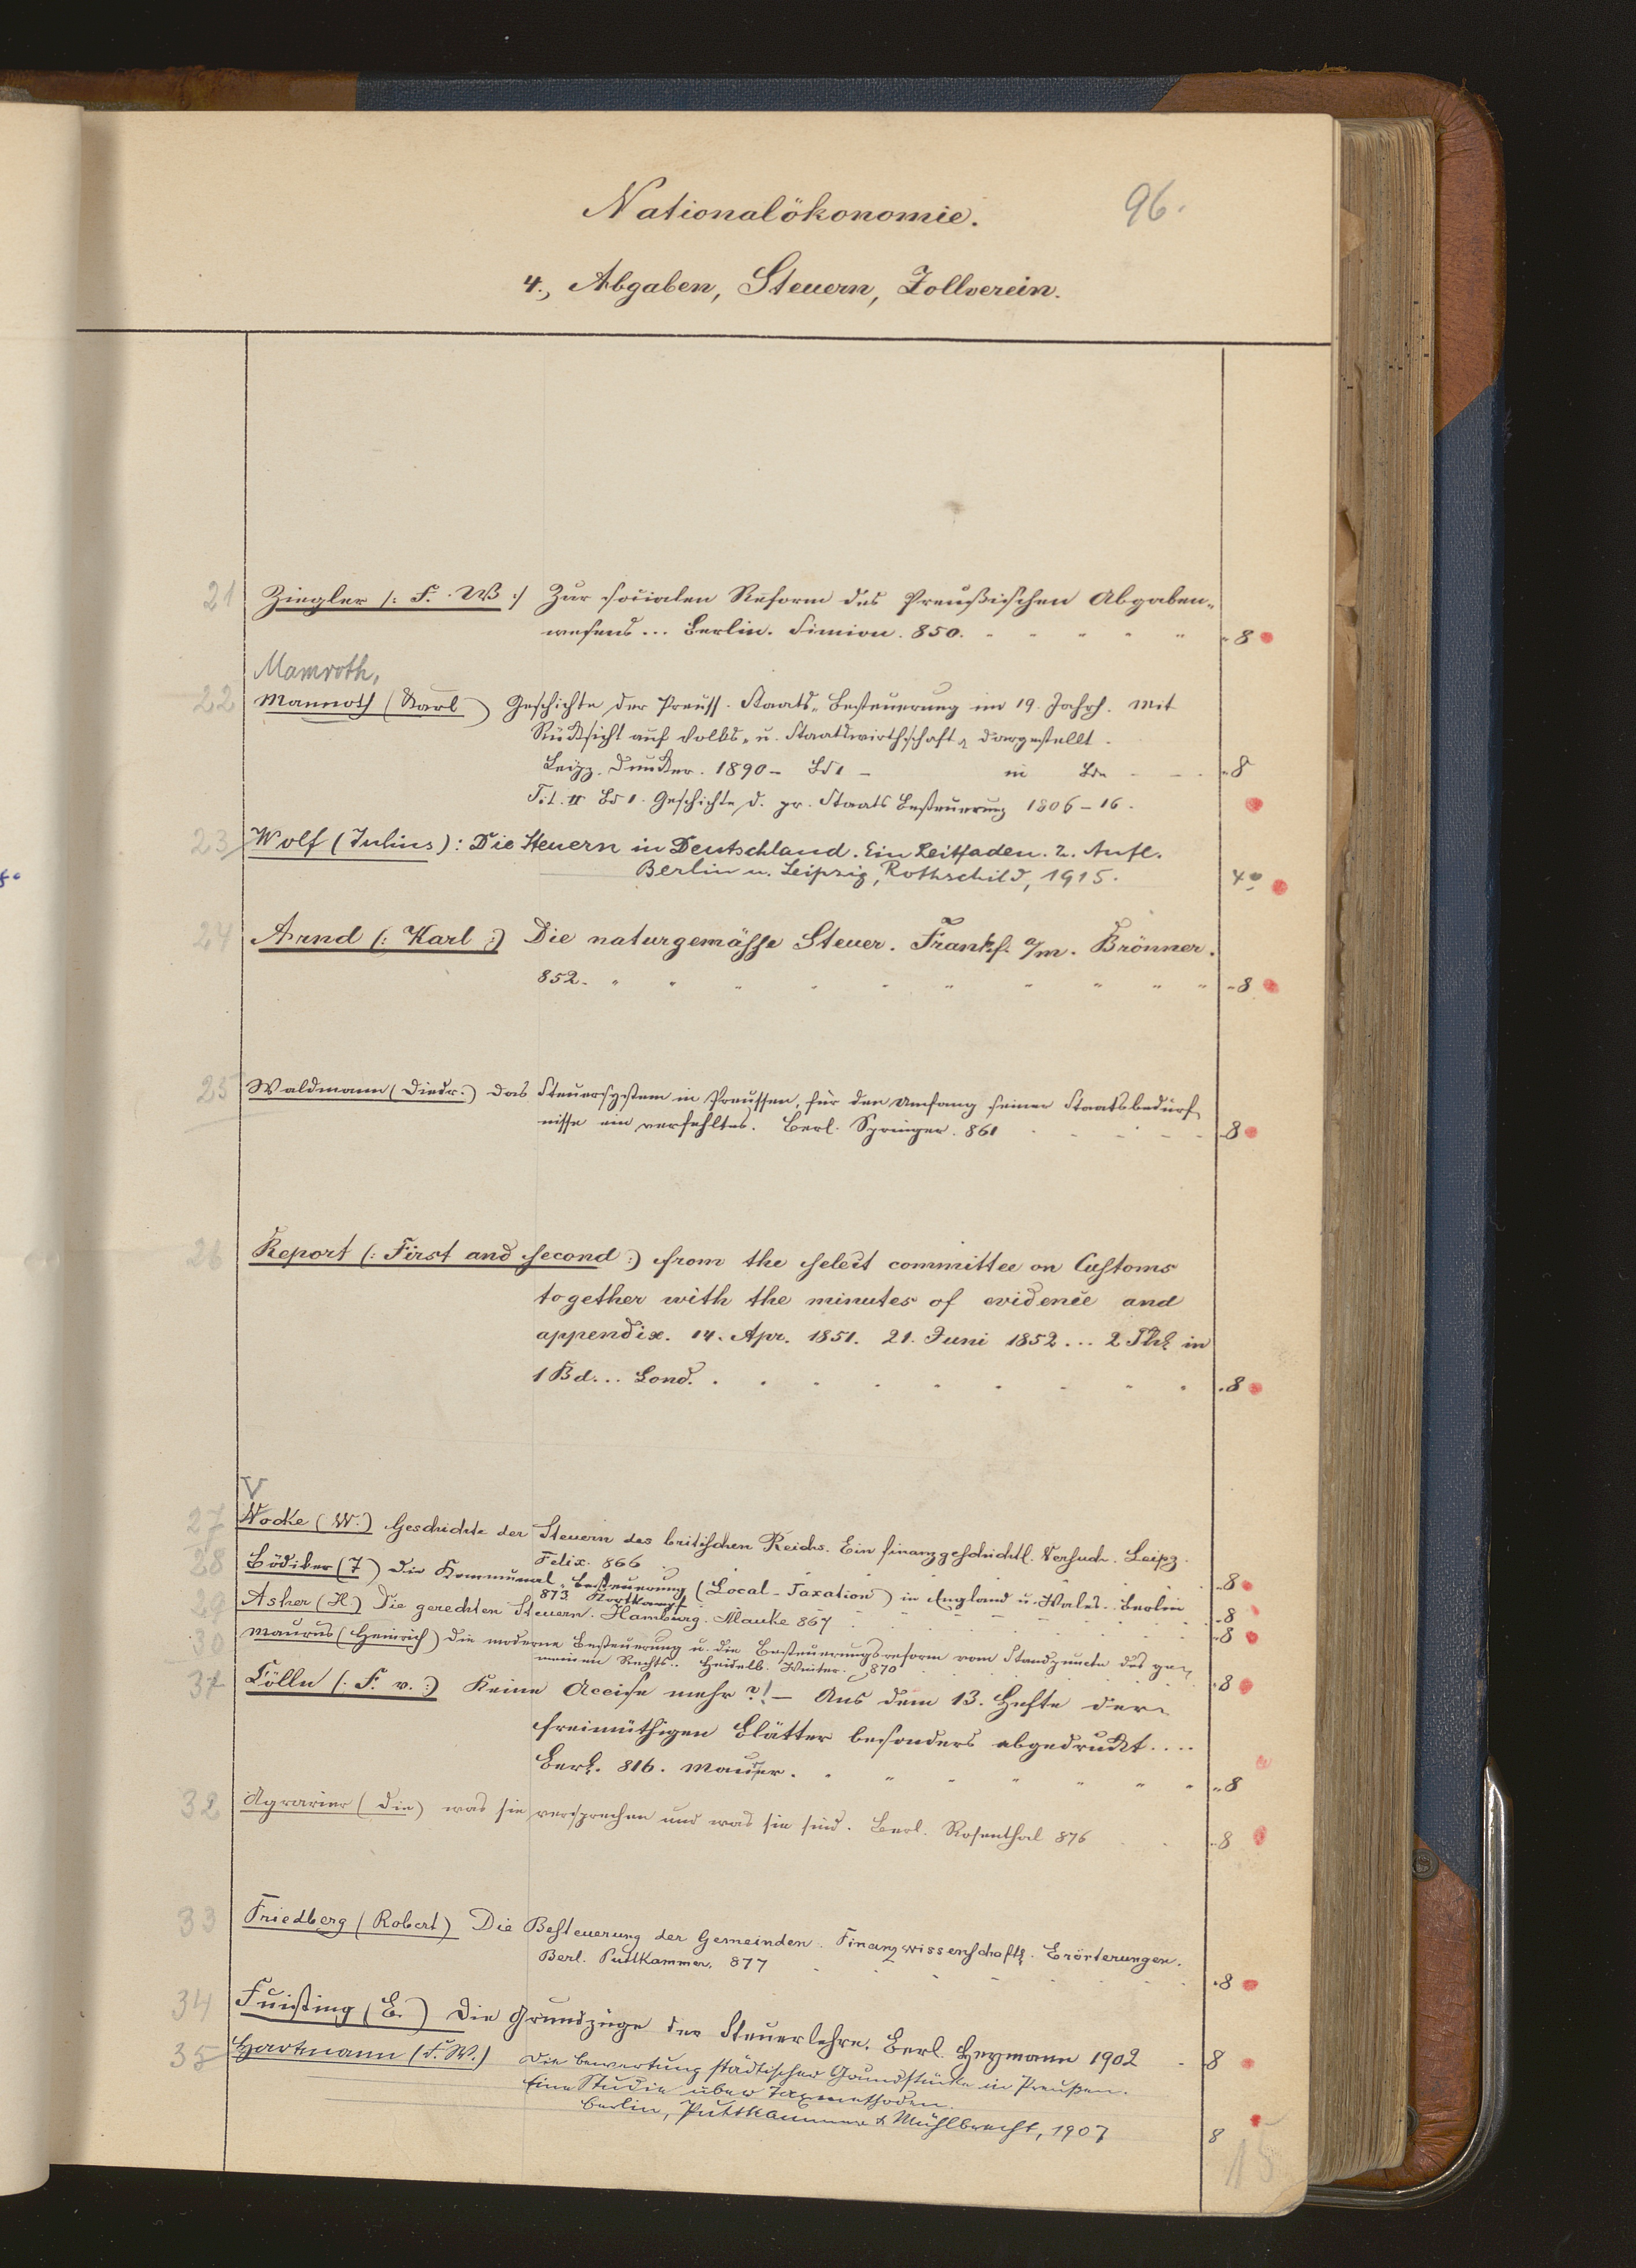 Nationalökonomie.
96.
4., Abgaben, Steuern, Zollverein.
21 Ziegler (: F. W :) Zur socialen Reform des Preußischen Abgaben-
wesens... Berlin. Simion. 850. " 8
Mamroth,
22 Mannoth (Karl) Geschichte der Preuss. Staats-Besteuerung im 19. Jahrh. Mit
Rücksicht auf Volks- u. Staatswirthschaft dargestellt.
Leipz. Duncker. 1890 - Bd 1 - in Bdn - 8
Tit. II Bd 1. Geschichte d. pr. Staats Besteuerung 1806-16.
23 Wolf (Julius): Die Steuern in Deutschland. Ein Leitfaden. 2. Aufl.
Berlin u. Leipzig, Rothschild, 1915. 4°
24 Arnd (: Karl :) Die naturgemässe Steuer. Frankf. a/m. Brönner.
852. " 8
25 Waldmann (Diedr.) Das Steuersystem in Preussen, für den Umfang seiner Staatsbedürf
nisse ein verfehltes. Berl. Springer. 861 - 8
26 Report (: First and second :) from the select committee on Customs
together with the minutes of evidence and
appendix. 14. Apr. 1851. 21. Juni 1852... 2 Thle in
1 Bd... Lond. . 8
V
27 Nocke (W.) Geschichte der Steuern des britischen Reichs. Ein finanzgeschichtl. Versuch. Leipz.
Felix. 866 . 8
28 Bödiker (T) Die Kommunal-Besteuerung (Local-Taxation) in England u. Wales. Berlin
873 Kortkampf 8
29 Asher (H.) Die gerechten Steuern. Hamburg. Mauke 867 . 8
30 Maurus (Heinrich) Die moderne Besteuerung u. die Besteuerungsreform vom Standpuncte des ge-
meinen Rechts.. Heidelb. Winter. 870 . 8
31 Cölln (: F. v. :) Keine Accise mehr?! - Aus dem 13. Hefte der
freimüthigen Blätter besonders abgedruckt....
Berl. 816. Maurer. " 8
32 Agrarier (Die) was sie versprechen und was sie sind. Berl. Rosenthal 876 . 8
33 Friedberg (Robert) Die Besteuerung der Gemeinden. Finanzwissenschaftl. Erörterungen.
Berl. Puttkammer, 877 . 8
34 Fuisting (B.) Die Grundzüge der Steuerlehre. Berl. Heymann 1902 - 8
35 Hartmann (F. W.) Die Bewertung städtischer Grundstücke in Preußen.
Eine Studie über Taxmethoden.
Berlin, Puttkammer & Mühlbrecht, 1907 8
15